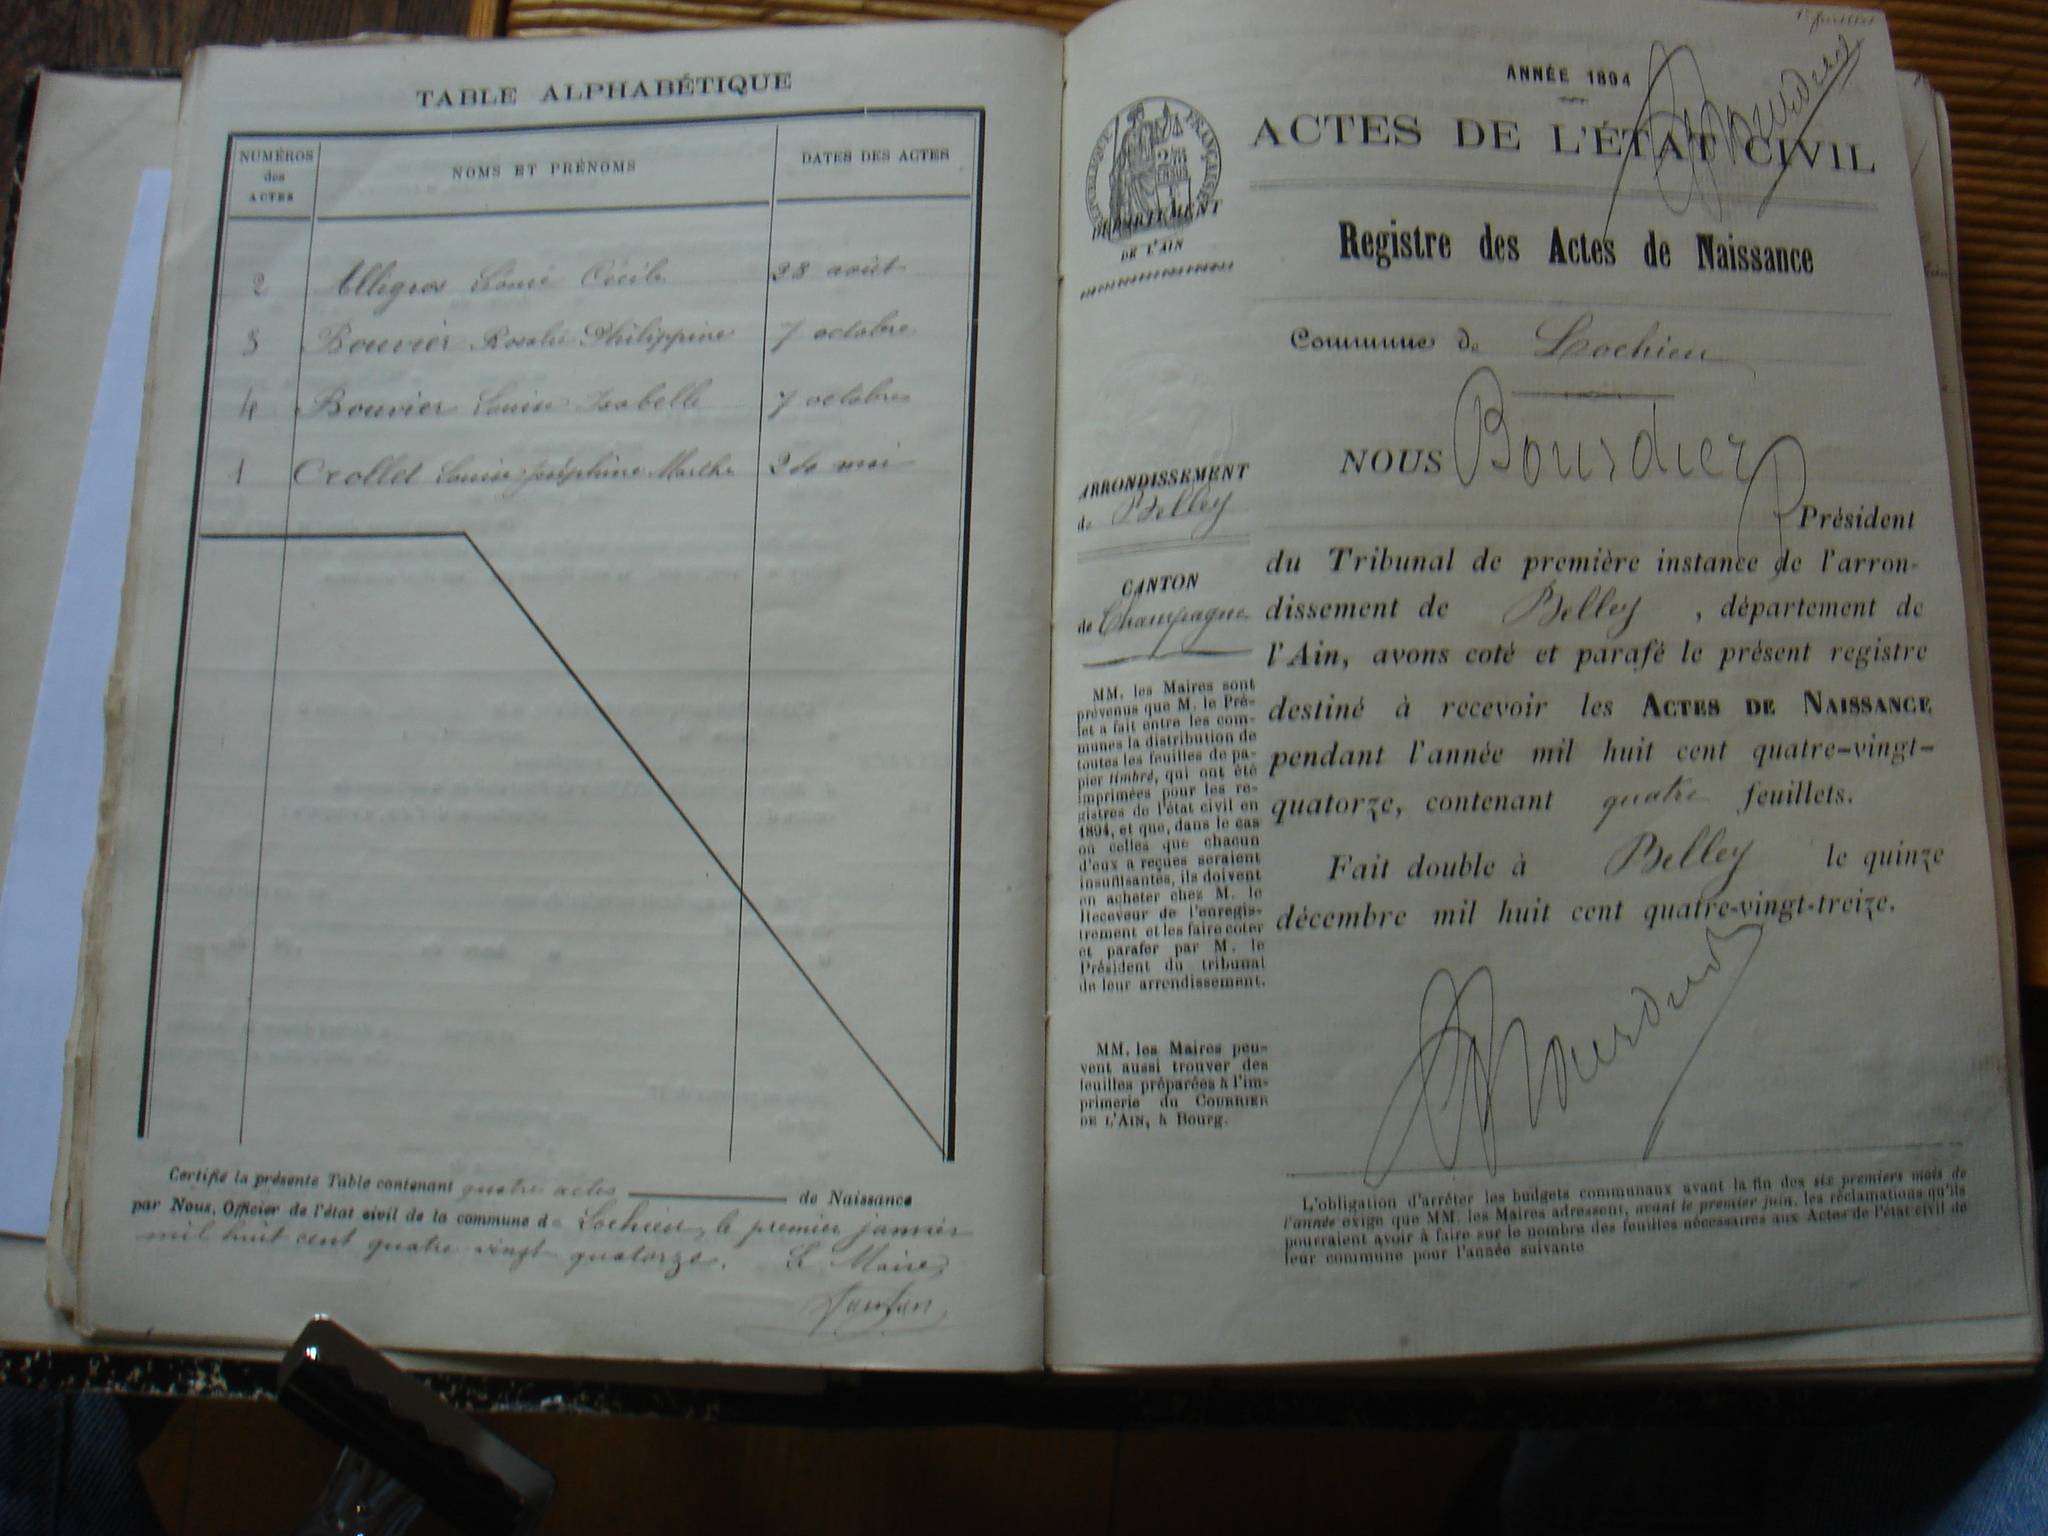 TABLE ALPHABÉTIQUE
NUMÉROS
des
ACTES
NOMS ET PRÉNOMS
DATES DES ACTES
2 Alligros Cécile 28 août
3 Bouvier Rosalie Philippine 7 octobre
4 Bouvier Louise Isabelle 7 octobre
1 Crollet Louise Joséphine Marthe mai
Certifié la présente Table contenant quatre actes de Naissance
par Nous, Officier de l'état civil de la commune de Lochieu, le premier janvier
mil huit cent quatre vingt quatorze. Le Maire,
1er feuillet
ANNÉE 1894
ACTES DE L'ÉTAT CIVIL
RÉPUBLIQUE FRANÇAISE
DÉPARTEMENT
DE L'AIN
Registre des Actes de Naissance
Commune de Lochieu
ARRONDISSEMENT
de Belley
CANTON
de Champagne
MM. les Maires sont
prévenus que M. le Pré-
fet a fait entre les com-
munes la distribution de
toutes les feuilles de pa-
pier timbré, qui ont été
imprimées pour les re-
gistres de l'état civil en
1894, et que, dans le cas
où celles que chacun
d'eux a reçues seraient
insuffisantes, ils doivent
en acheter chez M. le
Receveur de l'enregis-
trement et les faire coter
et parafer par M. le
Président du tribunal
de leur arrondissement.
MM. les Maires peu-
vent aussi trouver des
feuilles préparées à l'im-
primerie du COURRIER
DE L'AIN, à Bourg.
NOUS Bourdier
Président
du Tribunal de première instance de l'arron-
dissement de Belley, département de
l'Ain, avons coté et parafé le présent registre
destiné à recevoir les ACTES DE NAISSANCE
pendant l'année mil huit cent quatre-vingt-
quatorze, contenant quatre feuillets.
Fait double à Belley le quinze
décembre mil huit cent quatre-vingt-treize.
L'obligation d'arrêter les budgets communaux avant la fin des six premiers mois de
l'année exige que MM. les Maires adressent, avant le premier juin, les réclamations qu'ils
pourraient avoir à faire sur le nombre des feuilles nécessaires aux Actes de l'état civil de
leur commune pour l'année suivante